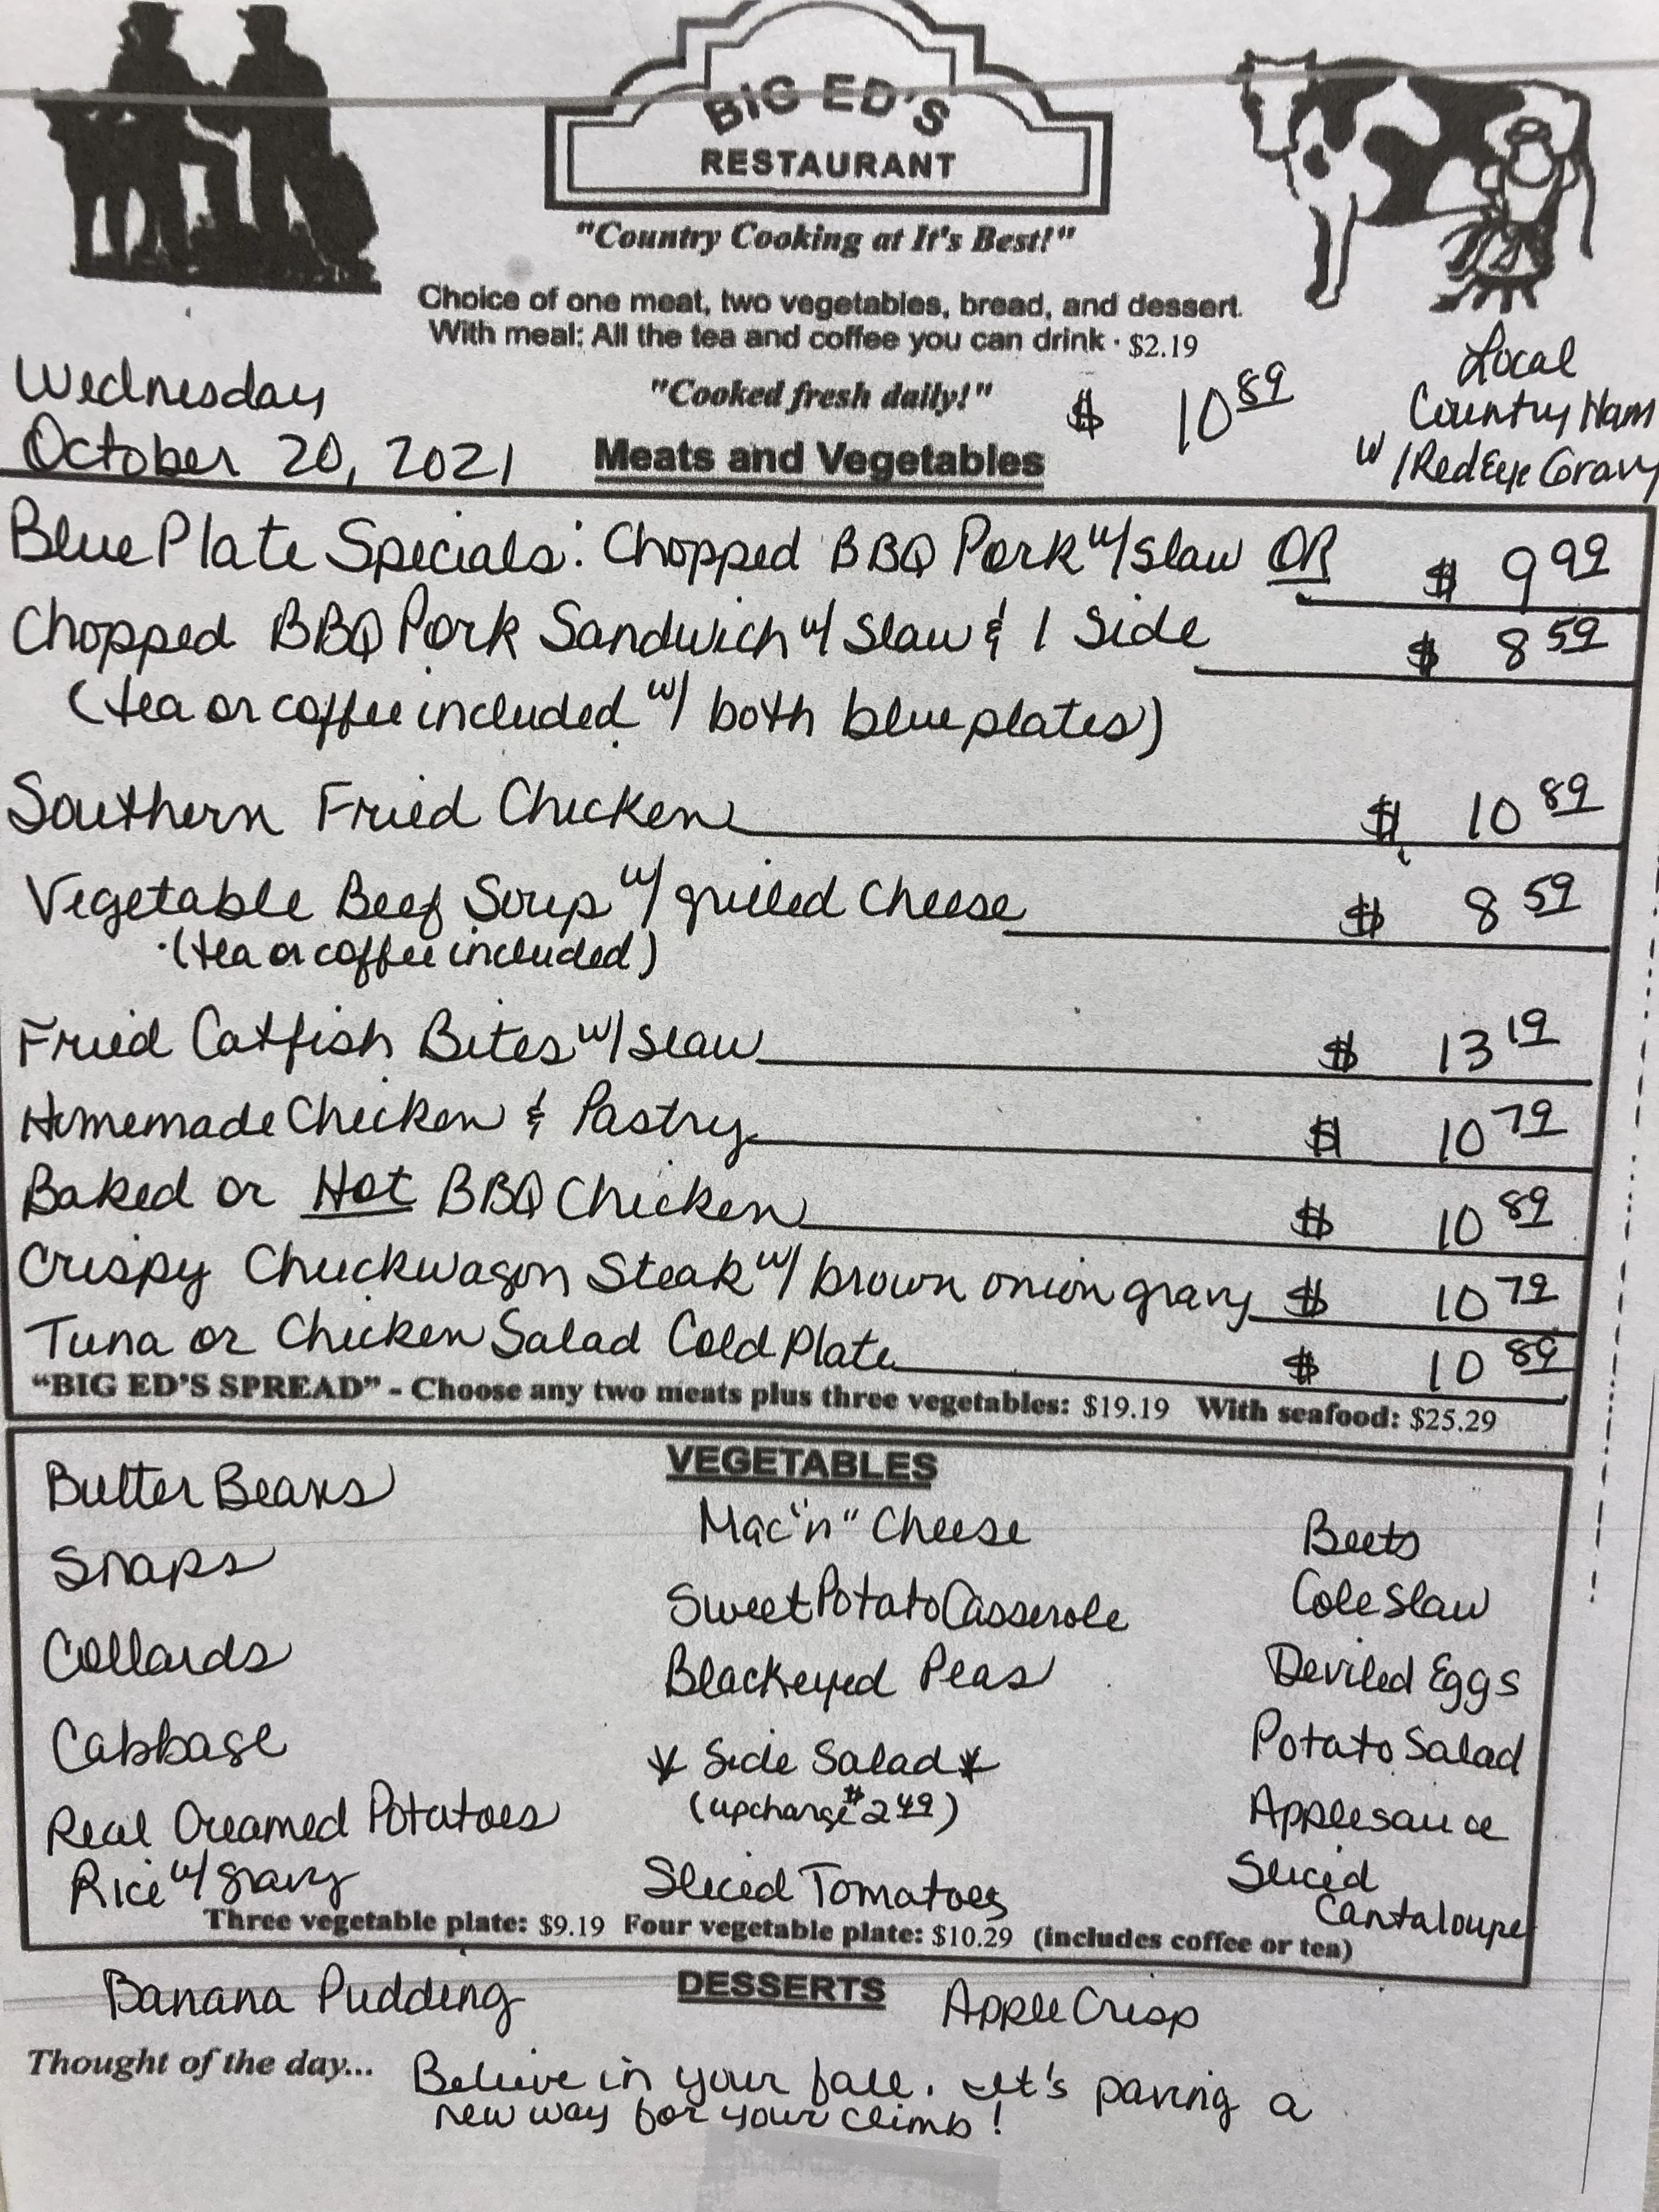 BIG ED'S
RESTAURANT
"Country Cooking at It's Best!"
Choice of one meat, two vegetables, bread, and dessert.
With meal: All the tea and coffee you can drink · $2.19
Wednesday
October 20, 2021
"Cooked fresh daily!"
$ 10 89
Local
Country Ham
w/ Red Eye Gravy
Meats and Vegetables
Blue Plate Specials: Chopped BBQ Pork w/ Slaw OR $ 9 99
Chopped BBQ Pork Sandwich w/ Slaw & 1 Side $ 8 59
(tea or coffee included w/ both blue plates)
Southern Fried Chicken $ 10 89
Vegetable Beef Soup w/ grilled Cheese $ 8 59
(tea or coffee included)
Fried Catfish Bites w/ Slaw $ 13 19
Homemade Chicken & Pastry $ 10 79
Baked or Hot BBQ Chicken $ 10 89
Crispy Chuckwagon Steak w/ brown onion gravy $ 10 79
Tuna or Chicken Salad Cold Plate $ 10 89
"BIG ED'S SPREAD" - Choose any two meats plus three vegetables: $19.19 With seafood: $25.29
VEGETABLES
Butter Beans
Snaps
Collards
Cabbage
Real Creamed Potatoes
Rice w/ gravy
Mac "n" Cheese
Sweet Potato Casserole
Blackeyed Peas
* Side Salad *
(upcharge $2 49)
Sliced Tomatoes
Beets
Cole Slaw
Deviled Eggs
Potato Salad
Applesauce
Sliced
Cantaloupe
Three vegetable plate: $9.19 Four vegetable plate: $10.29 (includes coffee or tea)
DESSERTS
Banana Pudding
Apple Crisp
Thought of the day... Believe in your fall. It's paving a
new way for your climb!